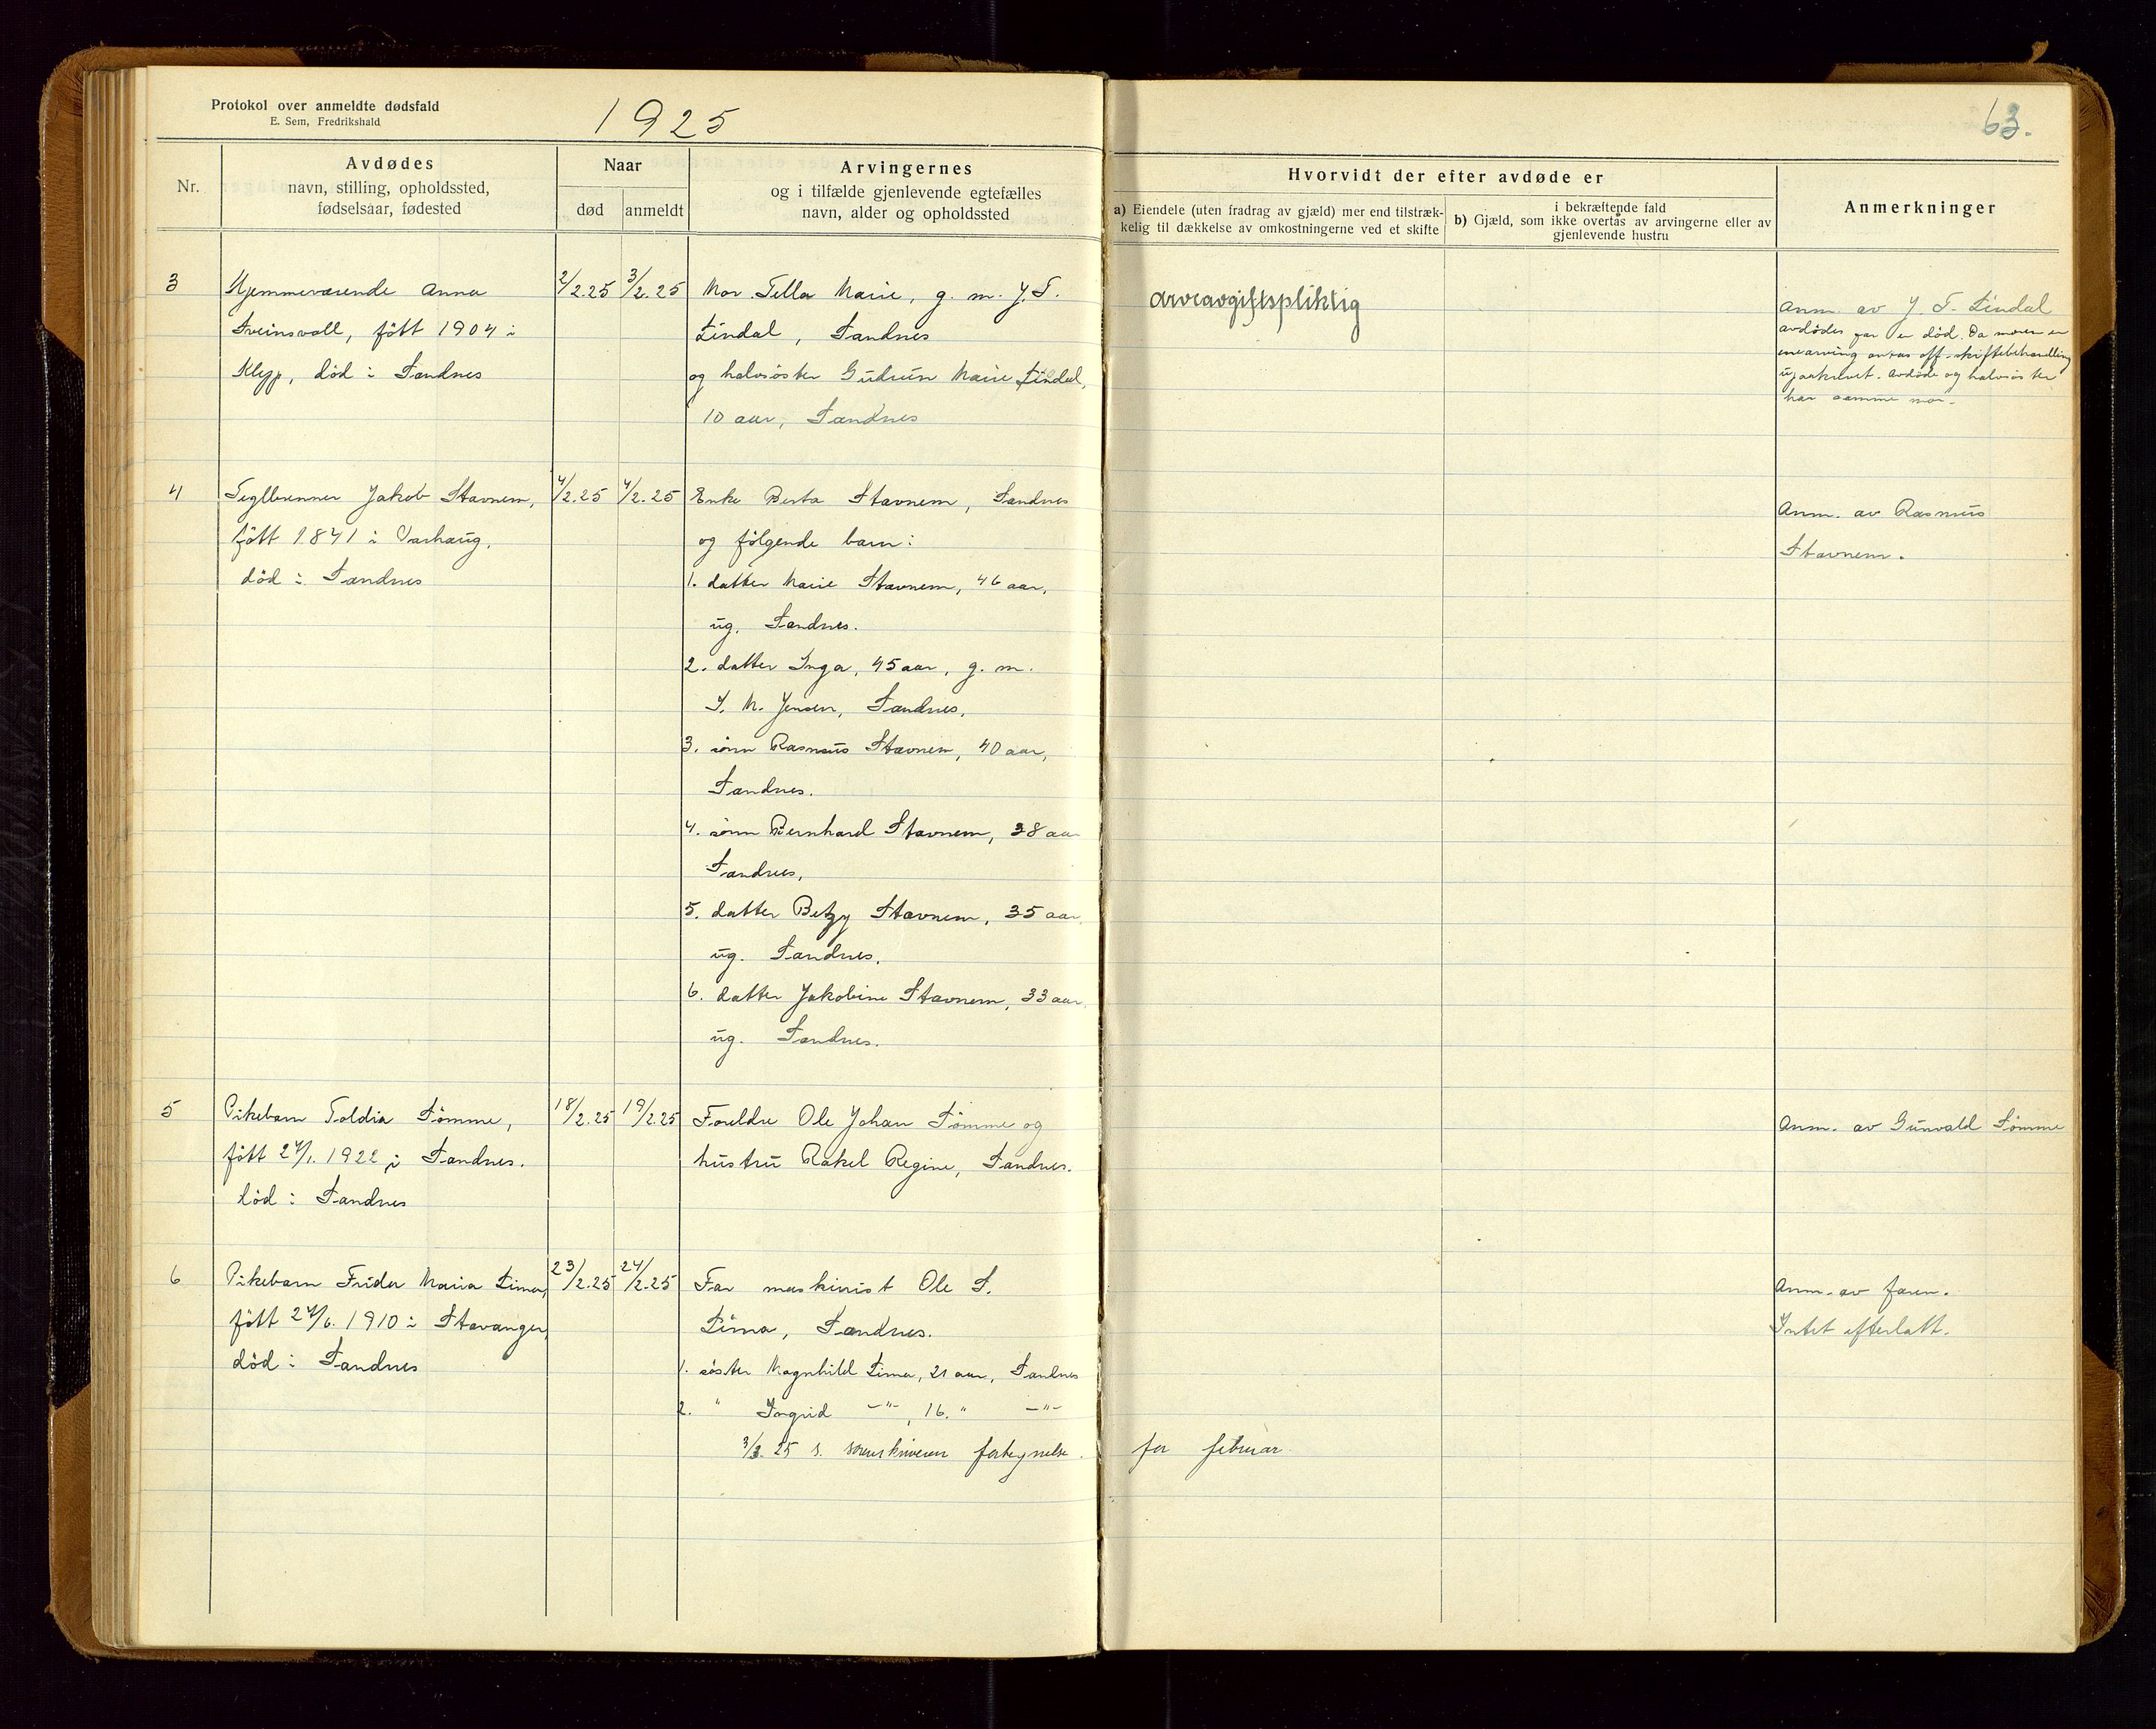 Protokol over anmeldte dødsfald
E. Sem, Fredrikshald
1925
63.
Nr.
Avdødes
navn, stilling, opholdssted,
fødselsaar, fødested
Naar
død
anmeldt
Arvingernes
og i tilfælde gjenlevende egtefælles
navn, alder og opholdssted
Hvorvidt der efter avdøde er
a) Eiendele (uten fradrag av gjæld) mer end tilstræk-
kelig til dækkelse av omkostningerne ved et skifte
i bekræftende fald
b) Gjæld, som ikke overtas av arvingerne eller av
gjenlevende hustru
Anmerkninger
3
Hjemmeværende Anna
Sveinsvoll, född 1904 i
Klepp, död i Sandnes
2/2.25
3/2.25
Mor. Tella Marie, g. m. J. T.
Lindal, Sandnes
og halvsöster Gudrun Marie Lindal,
10 aar, Sandnes
arveavgiftspliktig
Anm. av J. T. Lindal
avdödes far er död. Da moren er
enearving antas off. skiftebehandling
upaakrevet. Avdöde og halvsöster
har samme mor.
4
Teglbrenner Jakob Stavnem,
födt 1841 i Varhaug,
död i Sandnes
4/2.25
4/2.25
Enke Berta Stavnem, Sandnes
og fölgende barn:
1. datter Marie Stavnem, 46 aar,
ug. Sandnes.
2. datter Inga, 45 aar, g. m.
J. M. Jensen, Sandnes,
3. sönn Rasmus Stavnem, 40 aar,
Sandnes.
4. sönn Bernhard Stavnem, 38 aar
Sandnes,
5. datter Betzy Stavnem, 35 aar,
ug. Sandnes,
6. datter Jakobine Stavnem, 33 aar,
ug. Sandnes.
Anm. av Rasmus
Stavnem.
5
Pikebarn Toldia Sömme,
födt 27/1. 1922 i Sandnes.
död i Sandnes
18/2.25
19/2.25
Foreldre Ole Johan Sömme og
hustru Rakel Regine, Sandnes.
Anm. av Gunvald Sömme
6
Pikebarn Frida Maria Lima,
födt 27/6. 1910 i Stavanger,
död i Sandnes
23/2.25
24/2.25
Far maskinist Ole S.
Lima, Sandnes.
1. söster Magnhild Lima, 21 aar, Sandnes
2. " Ingrid -"-, 16. " -"-
3/3. 25 s. sorenskriveren fortegnelse for februar
Anm. av faren.
Intet efterlatt.